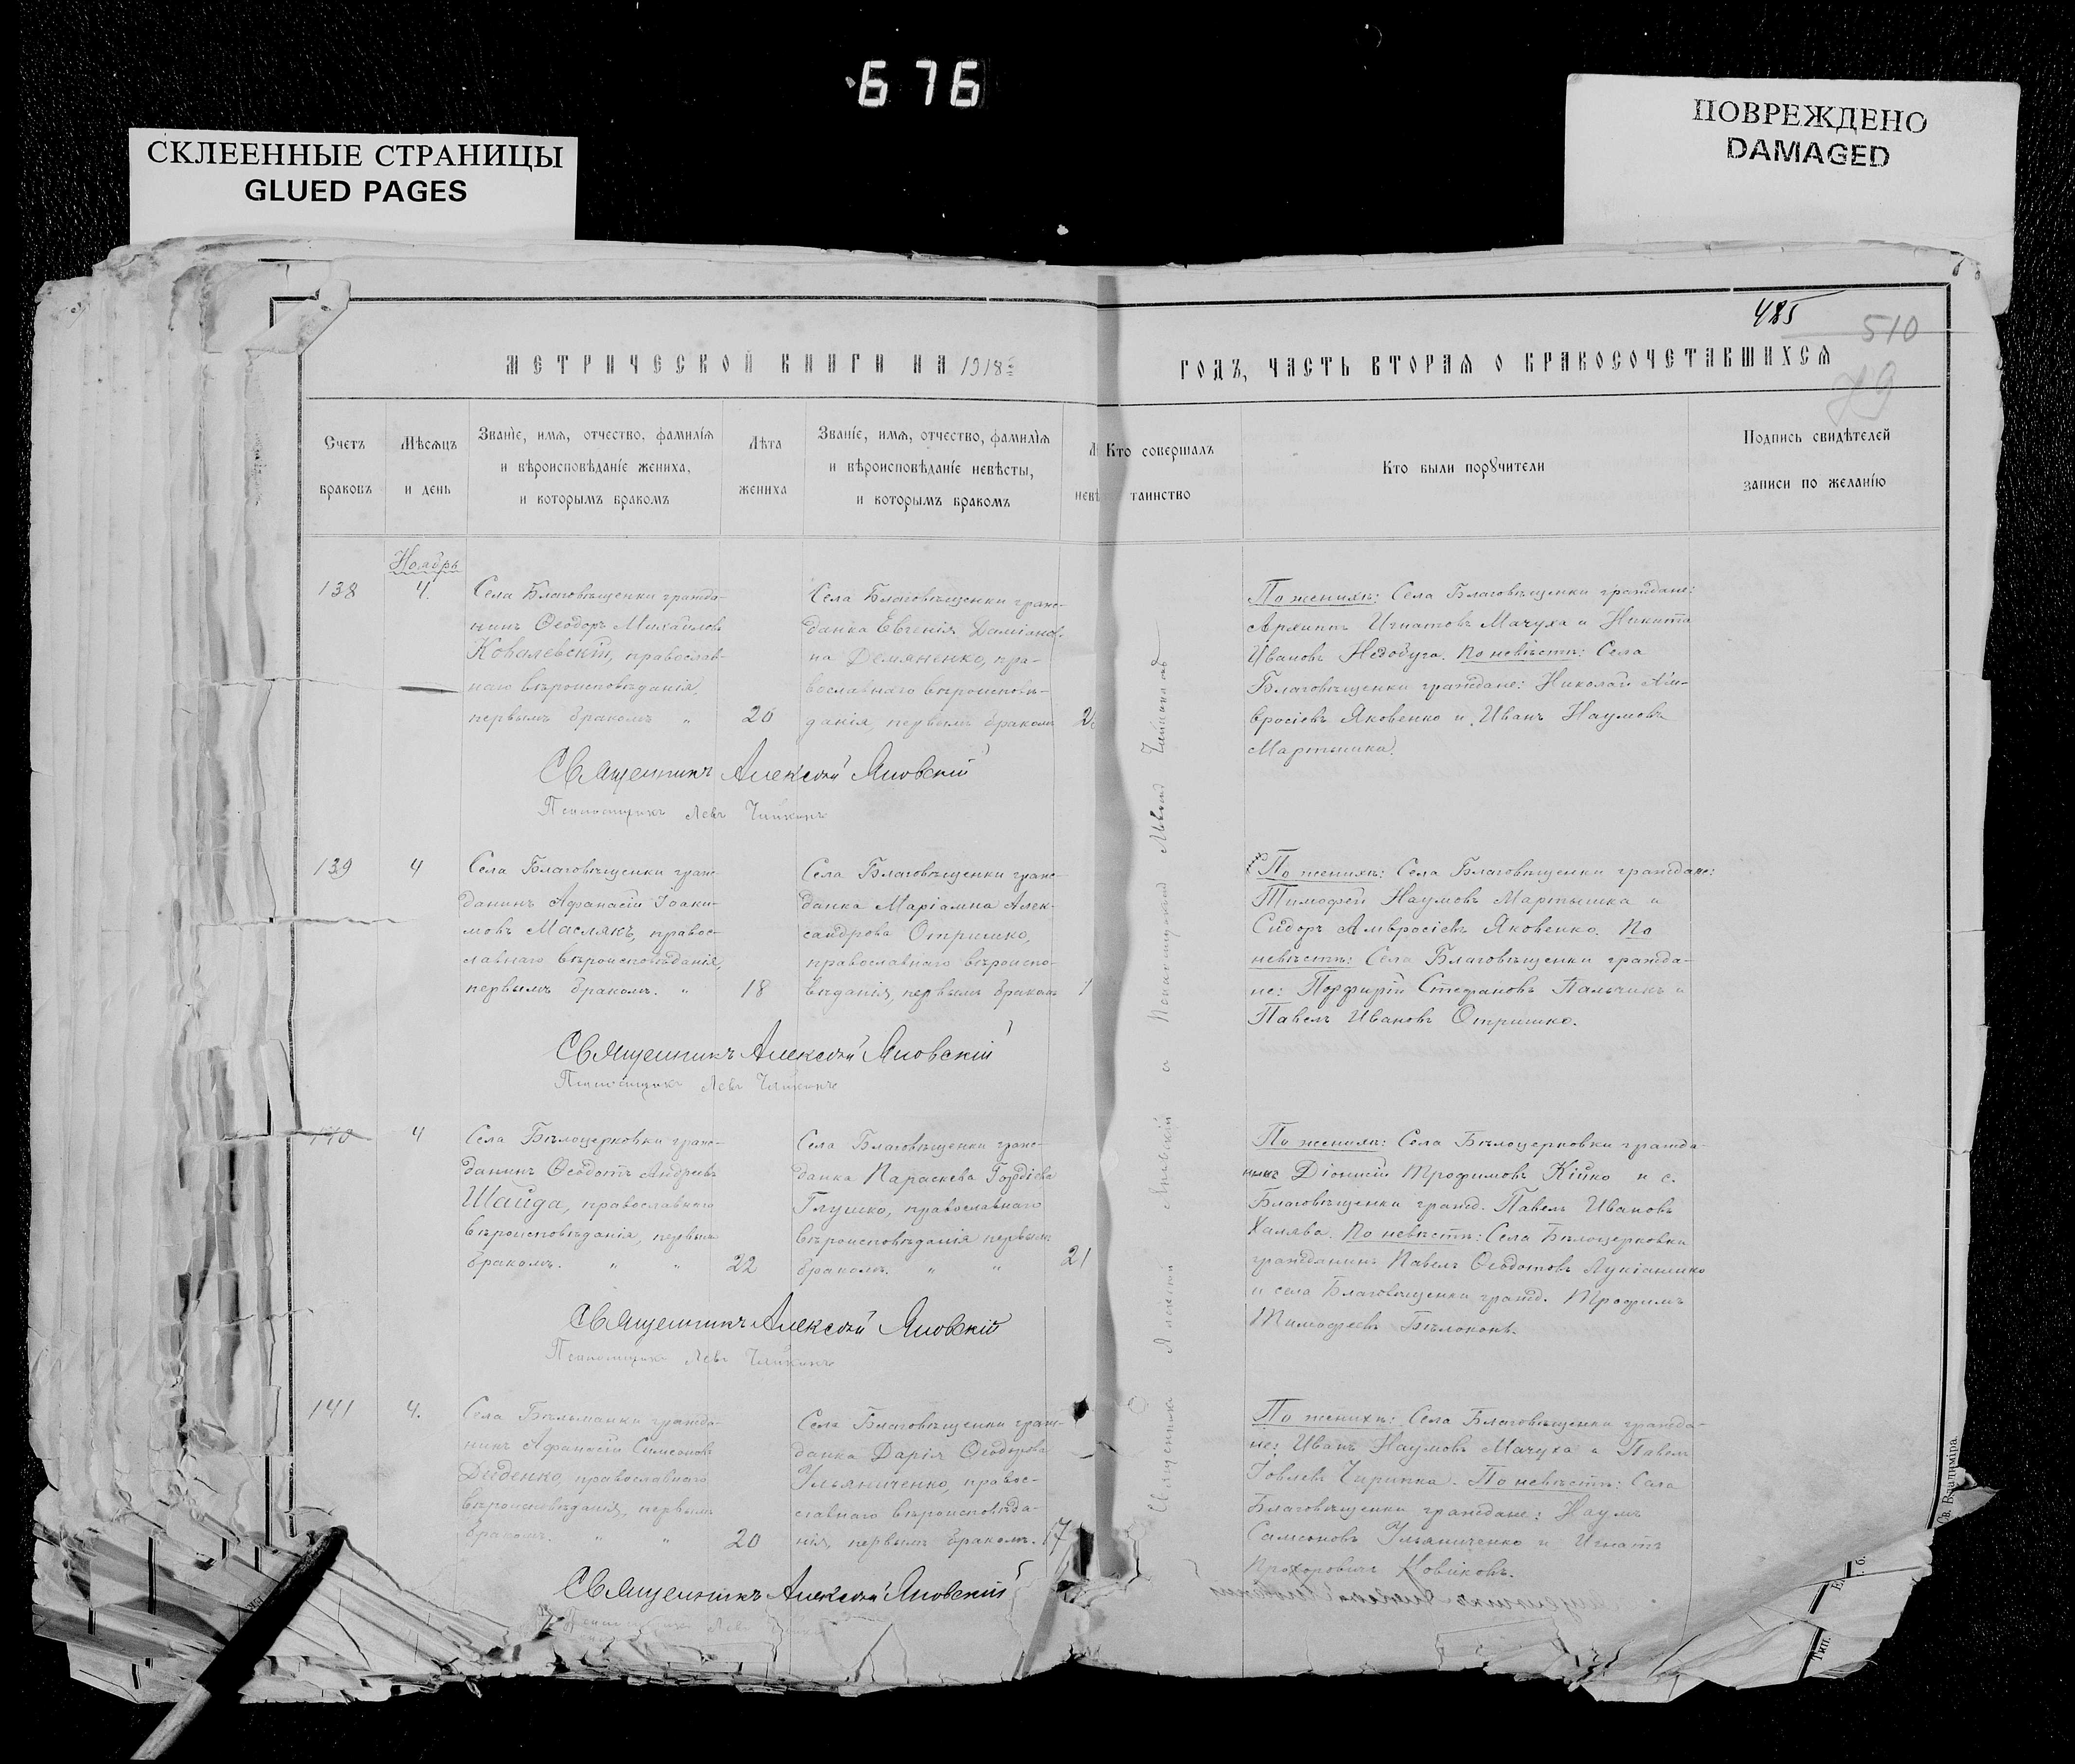 676
СКЛЕЕННЫЕ СТРАНИЦЫ
GLUED PAGES
ПОВРЕЖДЕНО
DAMAGED
485
510
79
МЕТРИЧЕСКОЙ КНИГИ НА 1918
ГОДЪ, ЧАСТЬ ВТОРАЯ О БРАКОСОЧЕТАВШИХСЯ
Счетъ
браковъ
Мѣсяцъ
и день
Званіе, имя, отчество, фамилія
и вѣроисповѣданіе жениха,
и которымъ бракомъ
Лѣта
жениха
Званіе, имя, отчество, фамилія
и вѣроисповѣданіе невѣсты,
и которымъ бракомъ
Л
невѣ
Кто совершалъ
таинство
Кто были поручители
Подпись свидѣтелей
записи по желанію
Ноябрь
138
4.
Села Благовѣщенки гражда-
нинъ Ѳеодоръ Михайловъ
Ковалевскій, православ-
наго вѣроисповѣданія,
первымъ бракомъ "
20
Села Благовѣщенки граж-
данка Евгенія Даміанов-
на Демяненко, пра-
вославнаго вѣроисповѣ-
данія, первымъ бракомъ
По женихѣ: Села Благовѣщенки граждане:
Архиппъ Игнатовъ Мачуха и Никита
Ивановъ Недобуга. По невѣстѣ: Села
Благовѣщенки граждане: Николай Ам-
вросіевъ Яковенко и Иванъ Наумовъ
Мартышка.
Священникъ Алексѣй Яновскій
Псаломщикъ Левъ
139
4
Села Благовѣщенки граж-
данинъ Афанасій Іоаки-
мовъ Маслякъ, правос-
лавнаго вѣроисповѣданія,
первымъ бракомъ. "
18
Села Благовѣщенки граж-
данка Маріамна Алек-
сандрова Отришко,
православнаго вѣроиспо-
вѣданія, первымъ бракомъ
1
По женихѣ: Села Благовѣщенки граждане:
Тимофей Наумовъ Мартышка и
Сидоръ Амвросіевъ Яковенко. По
невѣстѣ: Села Благовѣщенки гражда-
не: Порфирій Стефановъ Пальчикъ и
Павелъ Ивановъ Отришко.
Священникъ Алексѣй Яновскій
Псаломщикъ Левъ
140
4
Села Бѣлоцерковки граж-
данинъ Ѳеодотъ Андреевъ
Шайда, православнаго
вѣроисповѣданія, первымъ
бракомъ. " "
22
Села Благовѣщенки граж-
данка Параскева Гордіева
Глушко, православнаго
вѣроисповѣданія первымъ
бракомъ. " "
21
По женихѣ: Села Бѣлоцерковки гражда-
нинъ Діонисій Трофимовъ Кійко и с.
Благовѣщенки гражд. Павелъ Ивановъ
Халява. По невѣстѣ: Села Бѣлоцерковки
гражданинъ Павелъ Ѳеодотовъ Лукіанико
и села Благовѣщенки гражд. Трофимъ
Тимофеевъ Бѣлоконь.
Священникъ Алексѣй Яновскій
Псаломщикъ Левъ
141
4.
Села Бѣльманки гражда-
нинъ Афанасій Симеоновъ
Диденко, православнаго
вѣроисповѣданія, первымъ
бракомъ. " "
20
Села Благовѣщенки граж-
данка Дарія Ѳеодорова
Ульяниченко, правос-
лавнаго вѣроисповѣда-
нія, первымъ бракомъ.
17
По женихѣ: Села Благовѣщенки гражда-
не: Иванъ Наумовъ Мачуха и Павелъ
Іовлевъ Чирипка. По невѣстѣ: Села
Благовѣщенки граждане: Наумъ
Самсоновъ Ульяниченко и Игнатъ
Прохоровичъ Новиковъ.
Священникъ Алексѣй Яновскій
Псаломщикъ Левъ
Священникъ Алексѣй Яновскій и Псаломщикъ
Св. Владиміра.
Тип.